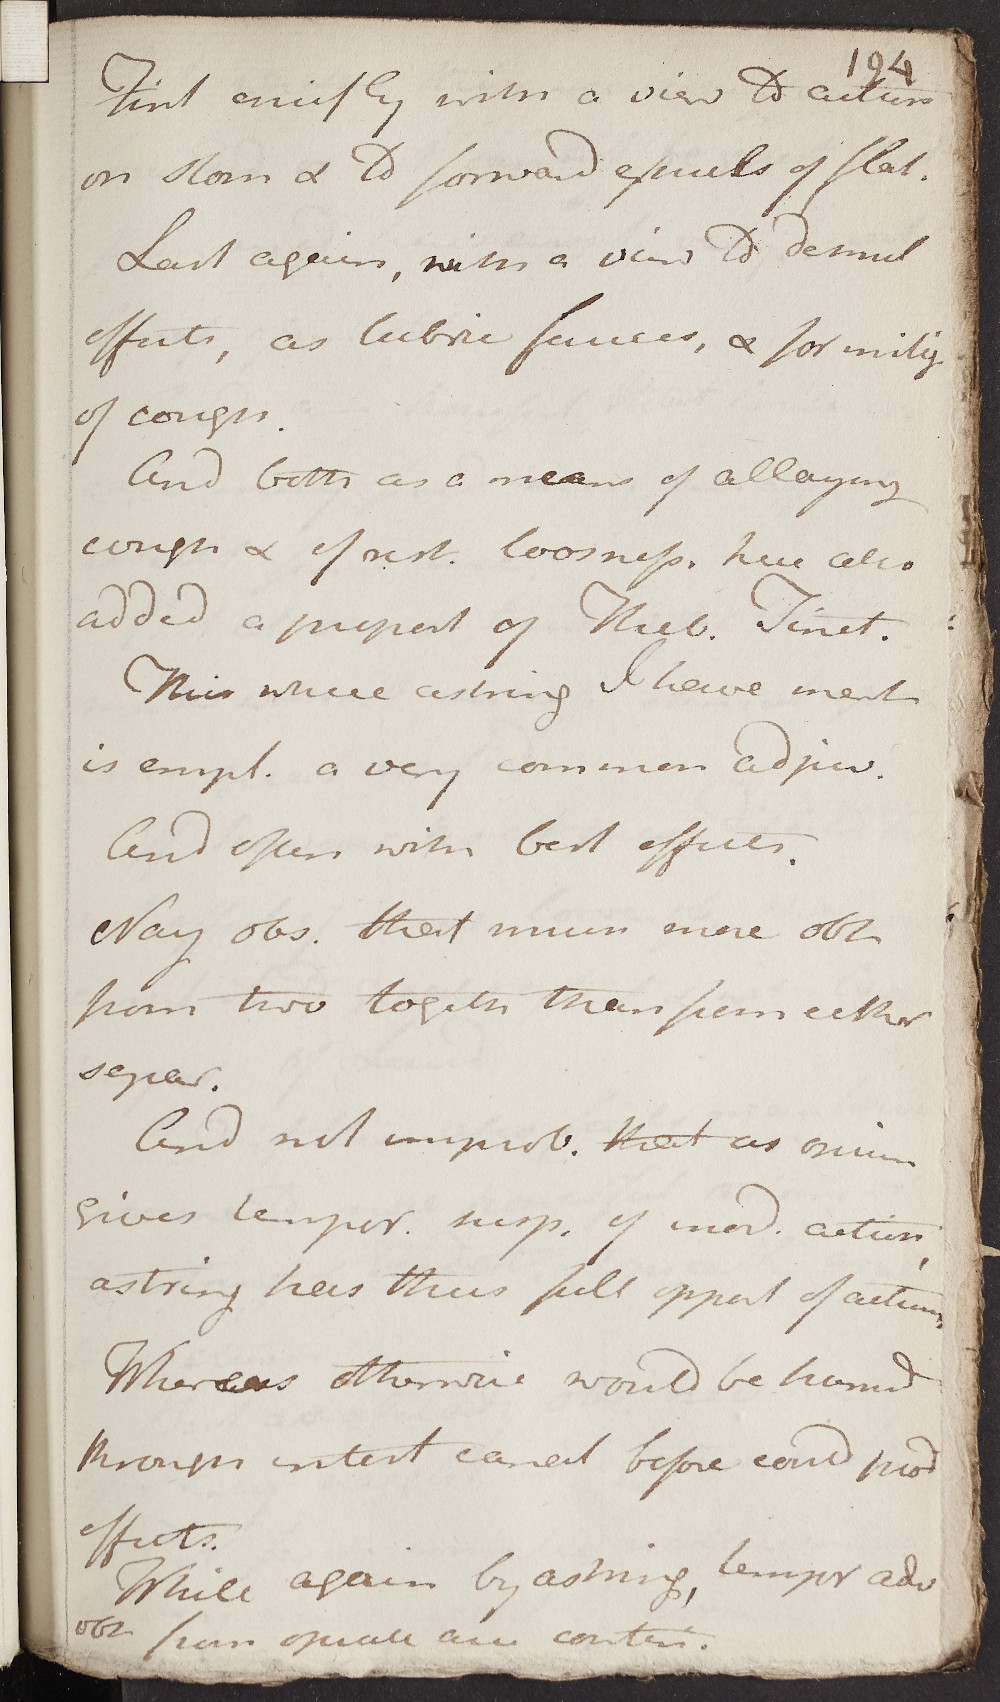 194
First chiefly with a view to action
on stom & to forward expuls of flat.
Last again, with a view to demul
effects, as lubric fauces, & for mitig
of cough.
And both as a means of allaying
cough & of rest. loosness. here also
added a proport of Theb. Tinct.
This where astring I have ment
is empl. a very common adjuv.
And often with best effects.
Nay obs. that much more obt
from two togeth than from either
separ.
And not improb. that as opium
gives tempor. susp. of mod. action,
astring has thus full opport of action.
Whereas otherwise would be hurried
through intest canal before could prod
effects.
While again by astring, tempor adv
obt from opiate are contin.